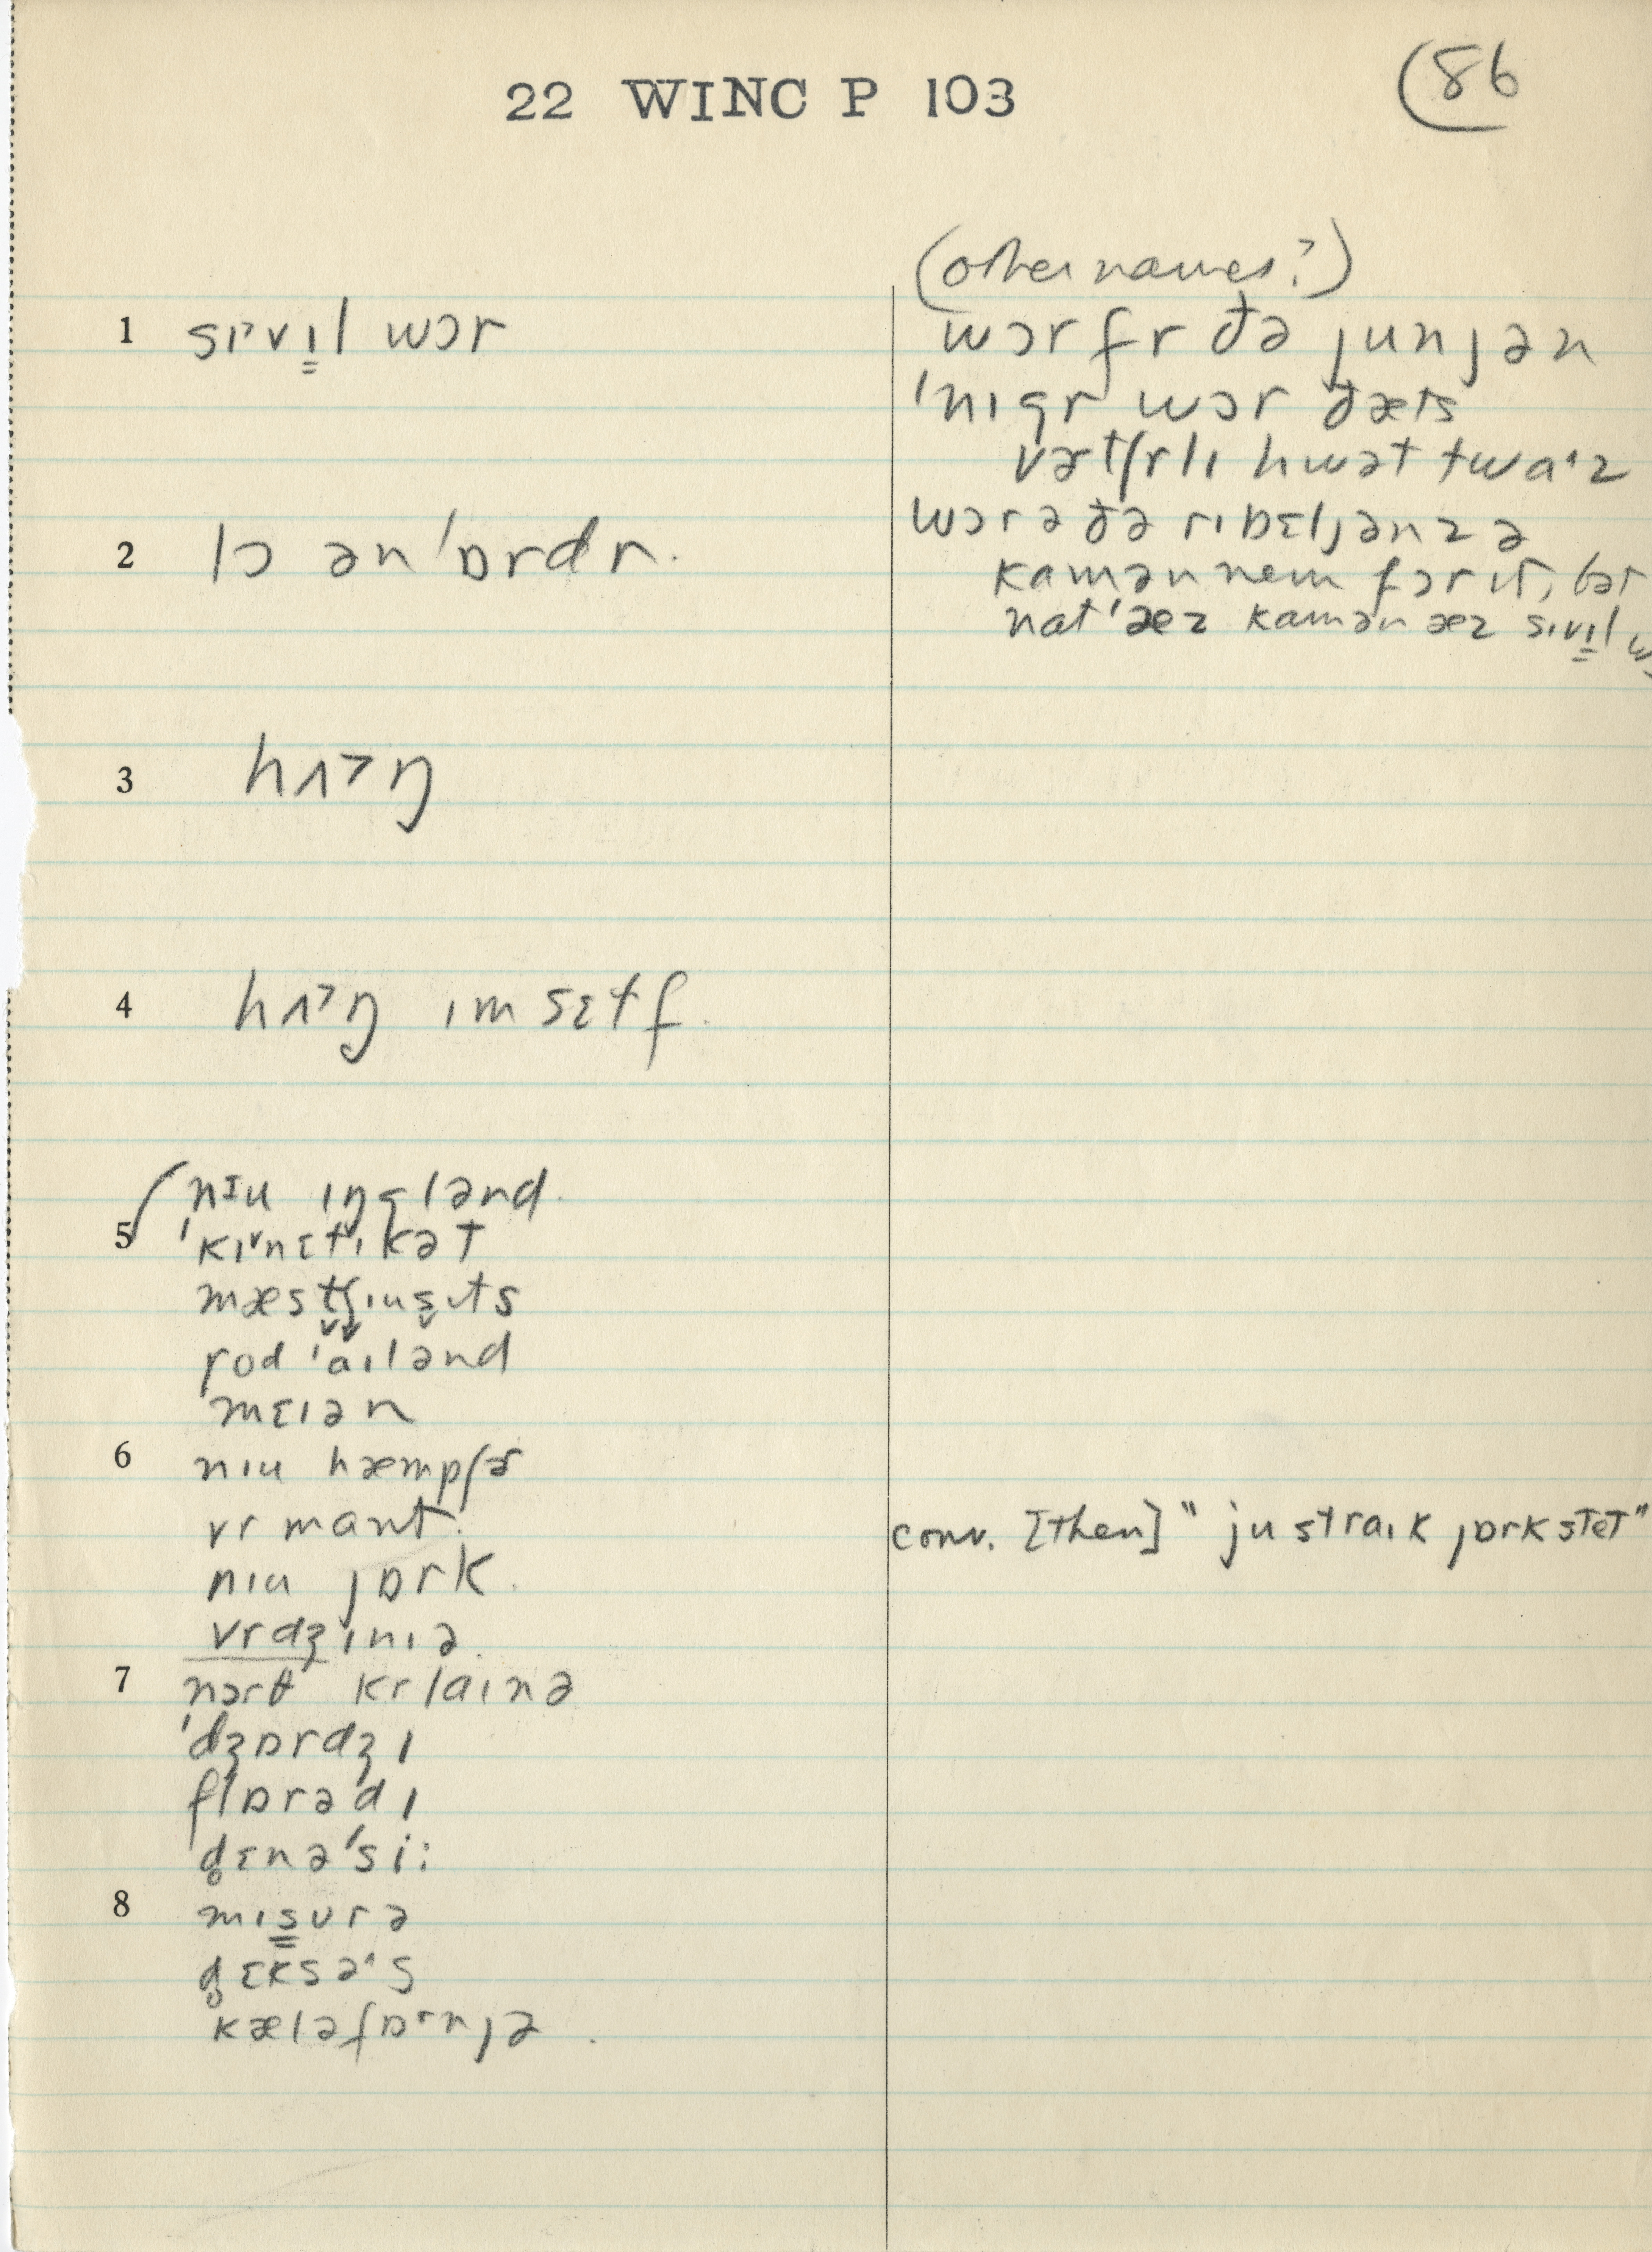 22 WINC P 103
(86
1 sɪ˅vɪ̳l wɔr
2 lɔ ən'ɒrdr.
3 hʌ˃ŋ
4 hʌ˃ŋ ɪmsɛɫf.
5 nɪu ɪŋglənd.
'kɪ˅nɛtɪkət
mæstʃɪusɪts
rod 'aɪlənd
mɛɪən
6 nɪu hæmpʃɚ
vrmant.
nɪu jɒrk.
vrdʒɪnɪə.
7 nɔrθ krlaɪnə
'dʒɒrdʒɪ
flɒrədɪ
d̥ɛnə'si:
8 mɪs̳ʊrə
d̥ɛksəˑs
kæləfɒˑrnjə.
(other names?)
wɔr fr ðə junjən
'nɪgr wɔr ðæts
vɚtʃrlɪ hwət twaˑz
wɔr ə ðə rɪbɛljən z ə
kamən nem fɔr ɪt, bət
nat 'æz kamən æz sɪvɪ̳l
conv. [then] "ju straɪk jɒrk stet"